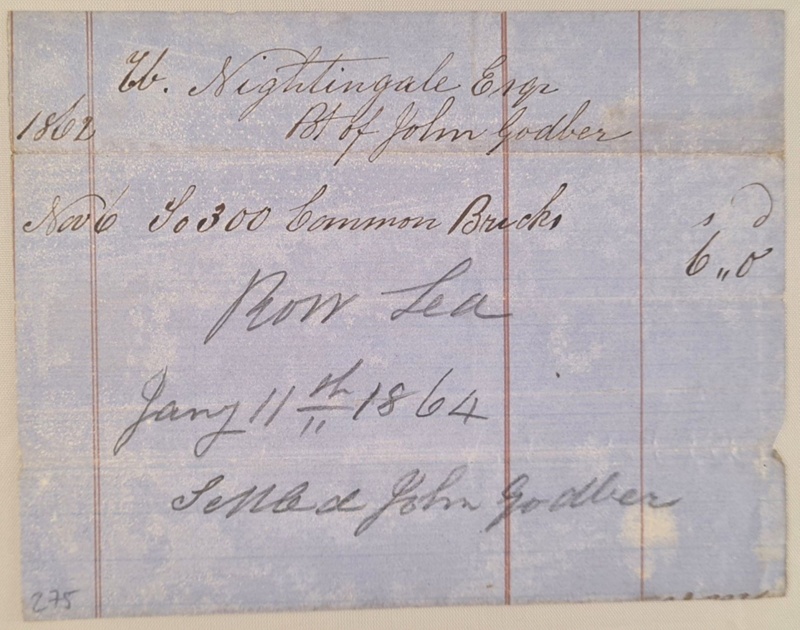 W. Nightingale Esqr
1862 Bt of John Godber
Nov 6 To 300 Common Bricks
s d
6 ,, 0
Row Lea
Jany 11th 1864
Settled John Godber
275